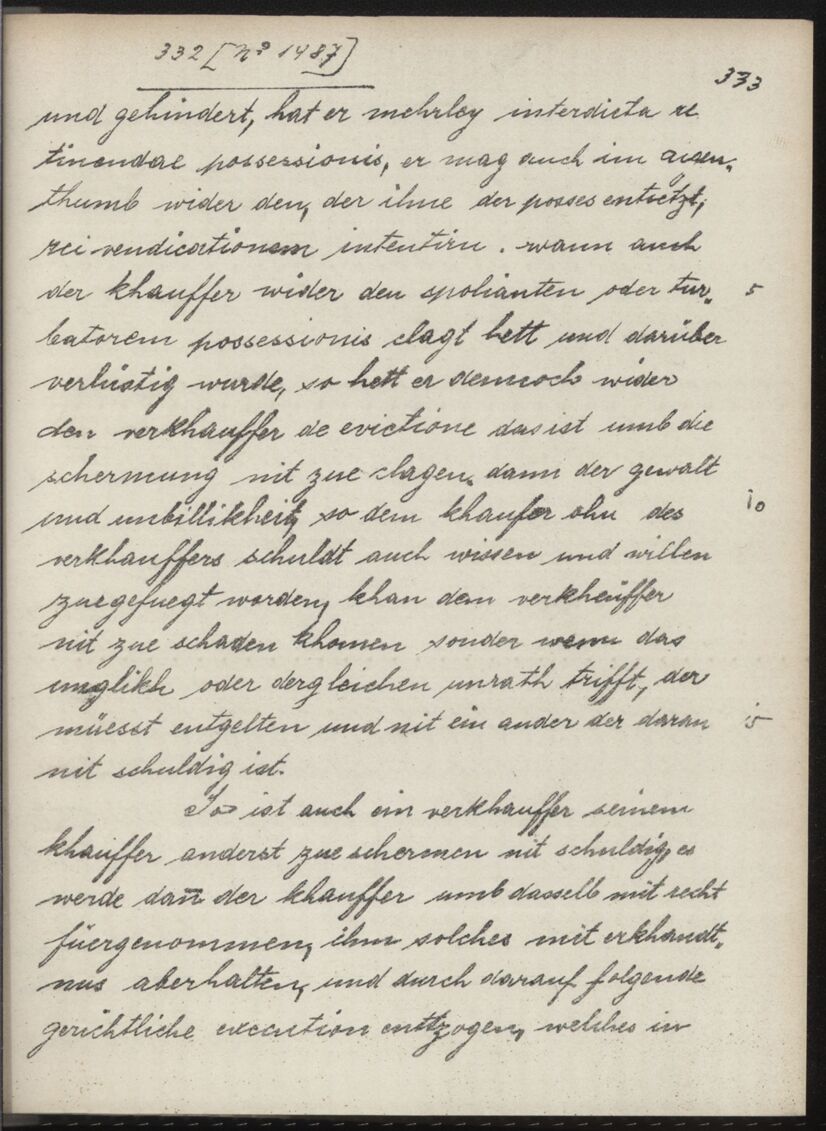 332 [nº 1487]
333
und gehindert, hat er mehrley interdicta re
tinendae possessionis, er mag auch im aigen„
thumb wider den, der ihne der posses entsetzt,
rei vendicationem intentirn. wann auch
der khauffer wider den spolianten oder tur„ 5
batorem possessionis clagt hett und darüber
verlüstig wurde, so hett er dennoch wider
den verkhauffer de evictione das ist umb die
schermung nit zue clagen, dann der gewalt
und unbillikheit, so dem khaufer ohn des 10
verkhauffers schuldt auch wissen und willen
zuegefuegt worden, khan dem verkheuffer
nit zue schaden khomen sonder wenn das
unglikh oder dergleichen unrath trifft, der
müesst entgelten und nit ein ander der daran 15
nit schuldig ist.
So ist auch ein verkhauffer seinem
khauffer anderst zue schermen nit schuldig, es
werde dan̅ der khauffer umb dasselb mit recht
füergenommen, ihm solches mit erkhandt„
nus aberhalten, und durch darauf folgende
gerichtliche execution entzogen, welches in